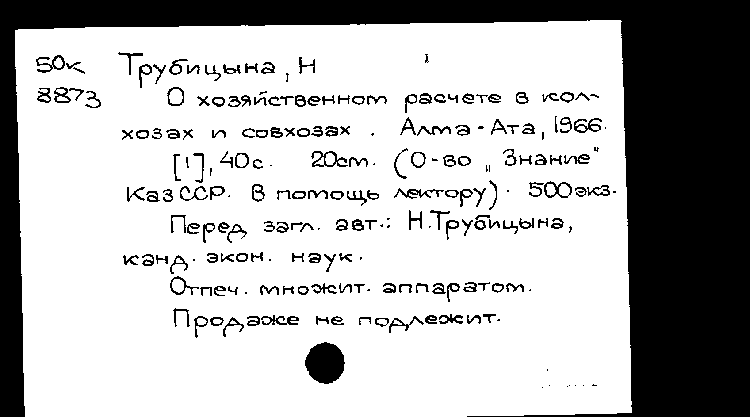 50к Трубицына, Н
8873 О хозяйственном расчете в кол-
хозах и совхозах. Алма-Ата, 1966.
[1], 40с. 20см. (О-во „Знание"
КазССР. В помощь лектору). 500экз.
Перед загл. авт.: Н.Трубицына,
канд. экон. наук.
Отпеч. множит. аппаратом.
Продаже не подлежит.